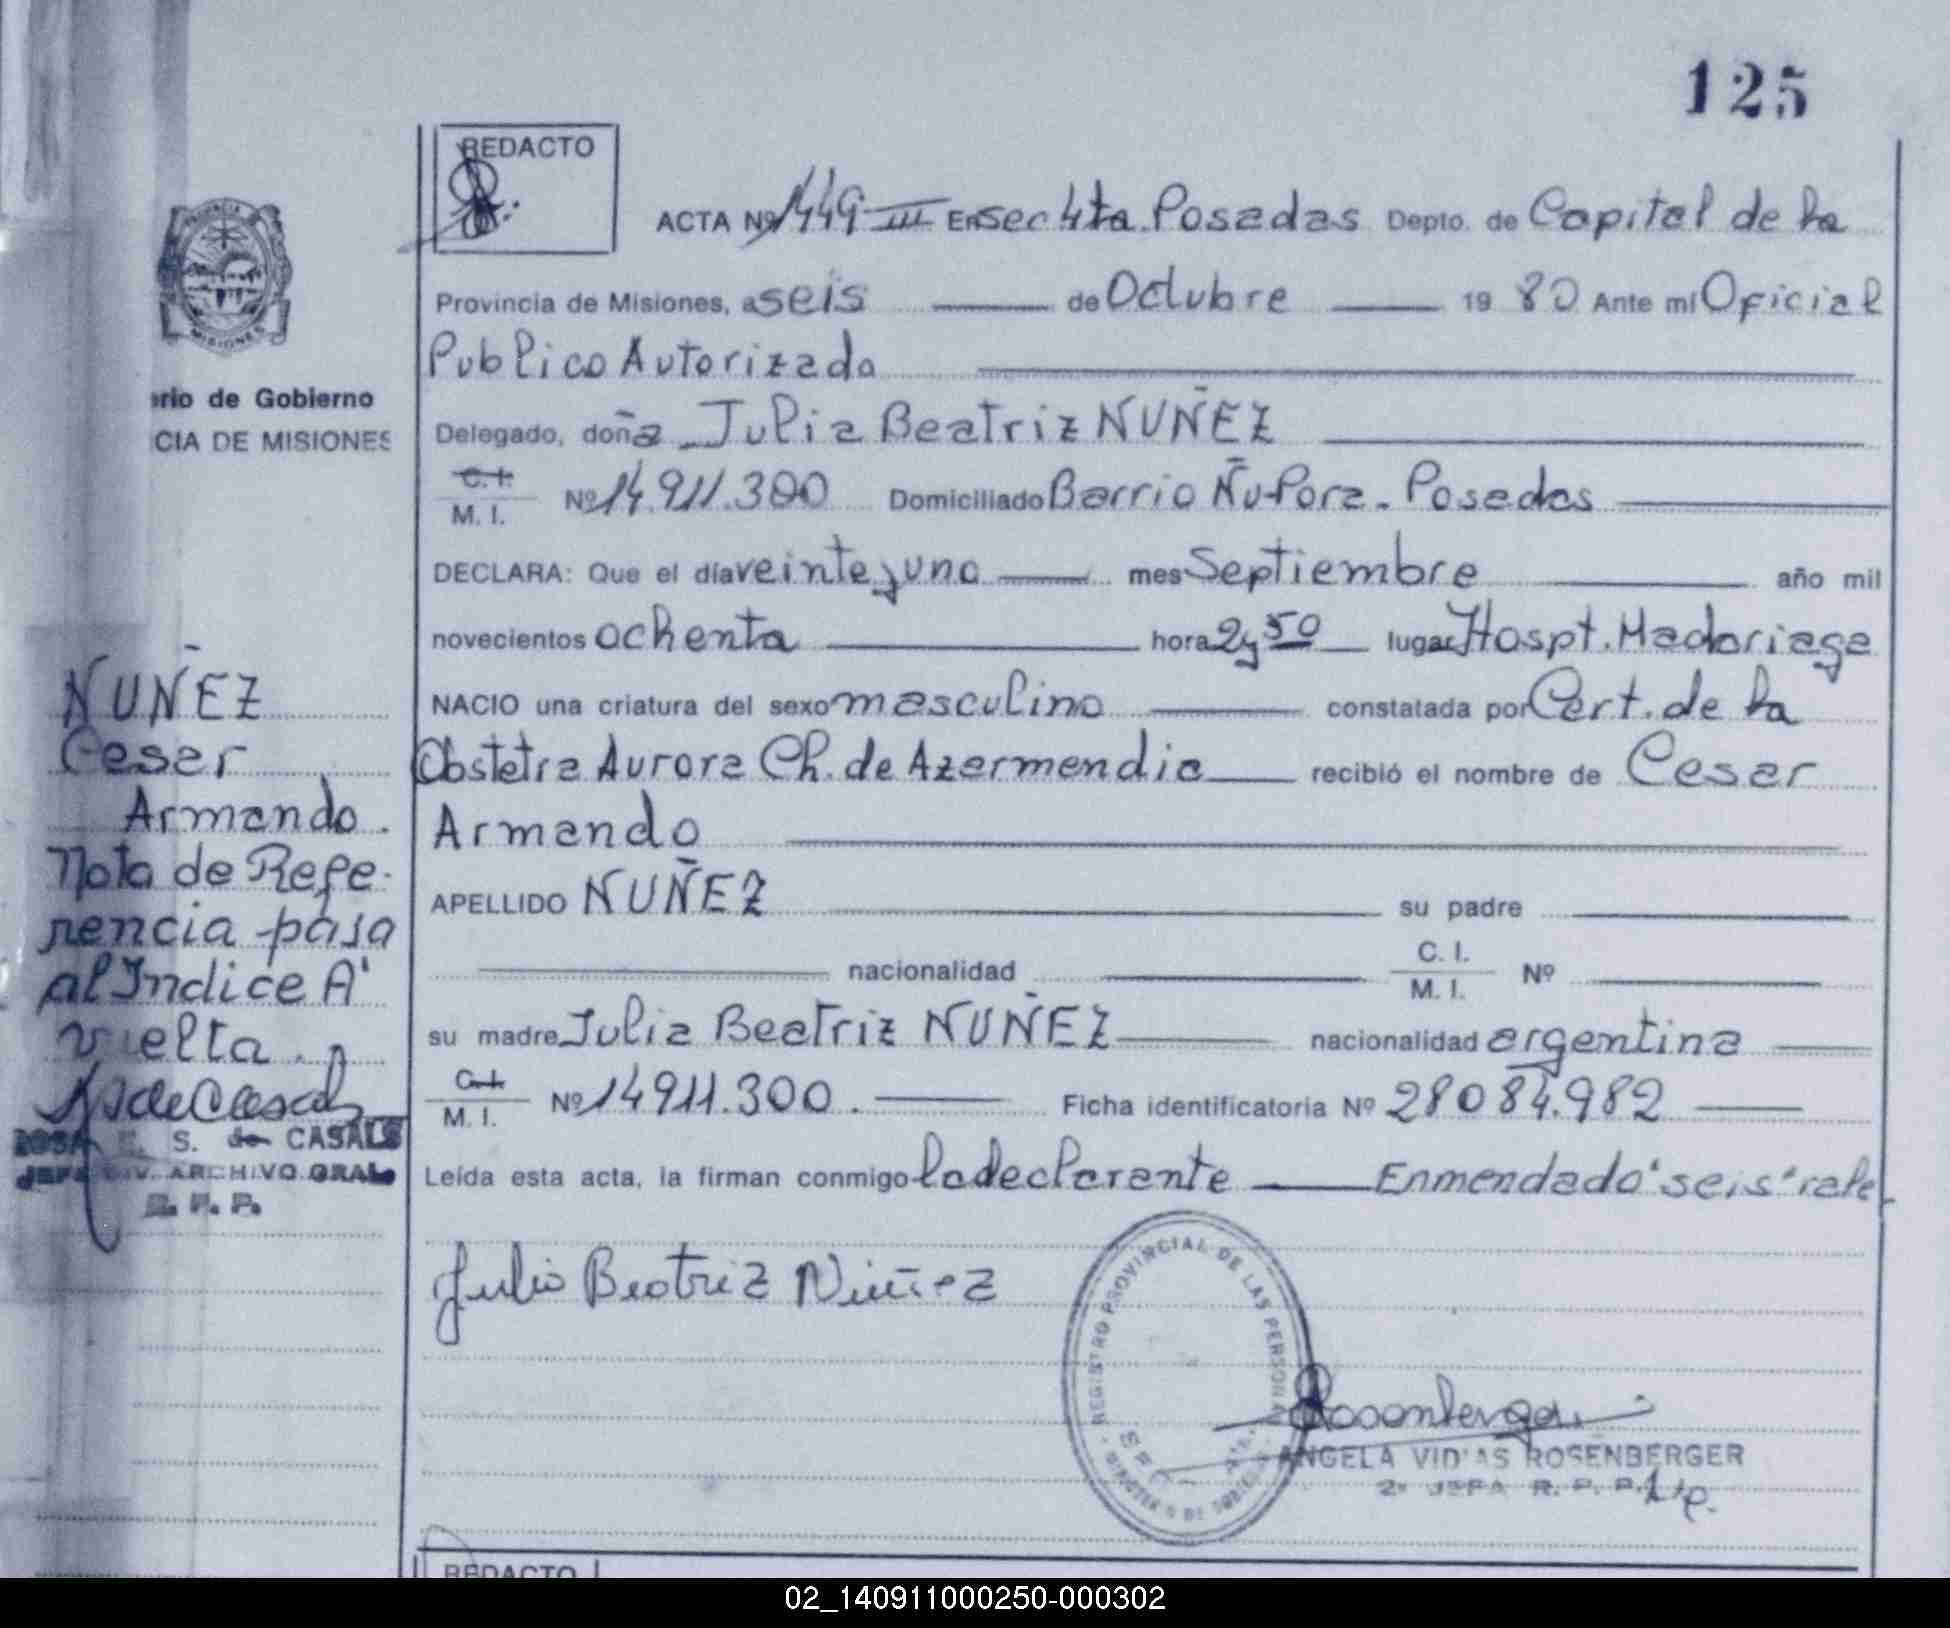 125
REDACTO
ACTA Nº 1449-III En sec 4ta. Posadas Depto. de Capital de la
Provincia de Misiones, a seis de Octubre 1980 Ante mi Oficial
Publico Autorizado
Delegado, doña Julia Beatriz NUÑEZ
C.I. M. I. Nº 14.911.300 Domiciliado Barrio Ñu-Pora. Posadas
DECLARA: Que el día veinte y uno mes Septiembre año mil
novecientos ochenta hora 2 y 50 lugar Hospt. Madariaga
NACIO una criatura del sexo masculino constatada por Cert. de la
Obstetra Aurora Ch. de Azarmendia recibió el nombre de Cesar
Armando
APELLIDO NUÑEZ su padre
nacionalidad C. I. M. I. Nº
su madre Julia Beatriz NUÑEZ nacionalidad argentina
C.I. M. I. Nº 14911.300. Ficha identificatoria Nº 28084.982
Leída esta acta, la firman conmigo la declarante Enmendado "seis" vale
Julia Beatriz Nuñez
REGISTRO PROVINCIAL DE LAS PERSONAS
ANGELA VIDAS ROSENBERGER
2ª JEFA R. P. P.
REDACTO
MISIONES
rio de Gobierno
CIA DE MISIONES
NUÑEZ
Cesar
Armando.
Nota de Refe-
rencia pasa
al Indice A'
vuelta.
ROSA E. S. de CASALS
JEFA DIV. ARCHIVO GRAL
R. P. P.
02_140911000250-000302